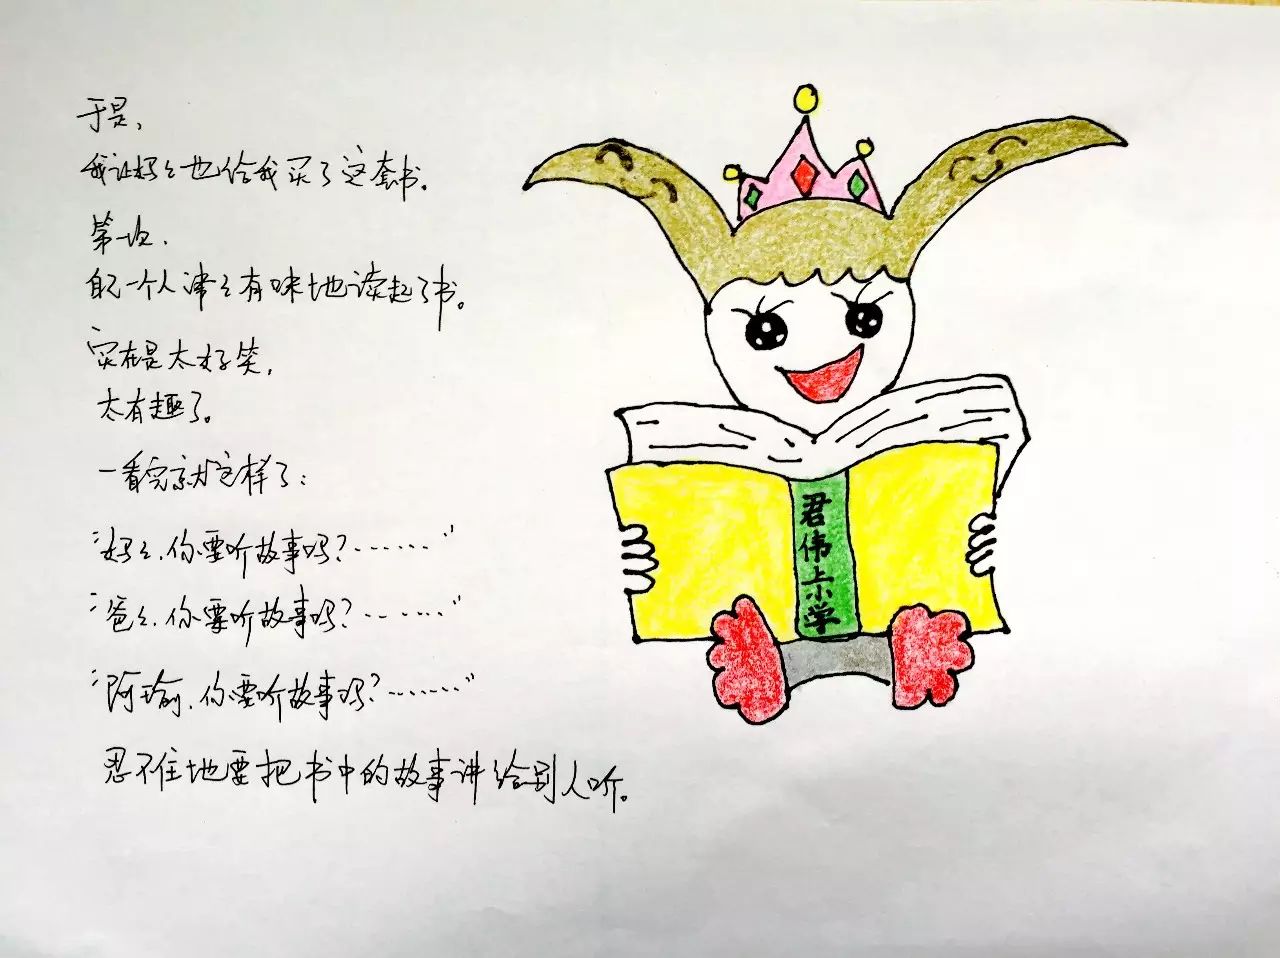 于是，
我让妈々也给我买了这套书。
第一次，
自己一个人津々有味地读起了书。
实在是太好笑，
太有趣了。
一看完就这样了：
“妈々，你要听故事吗？……”
“爸々，你要听故事吗？……”
“阿瑜，你要听故事吗？……”
忍不住地要把书中的故事讲给别人听。
君伟上小学